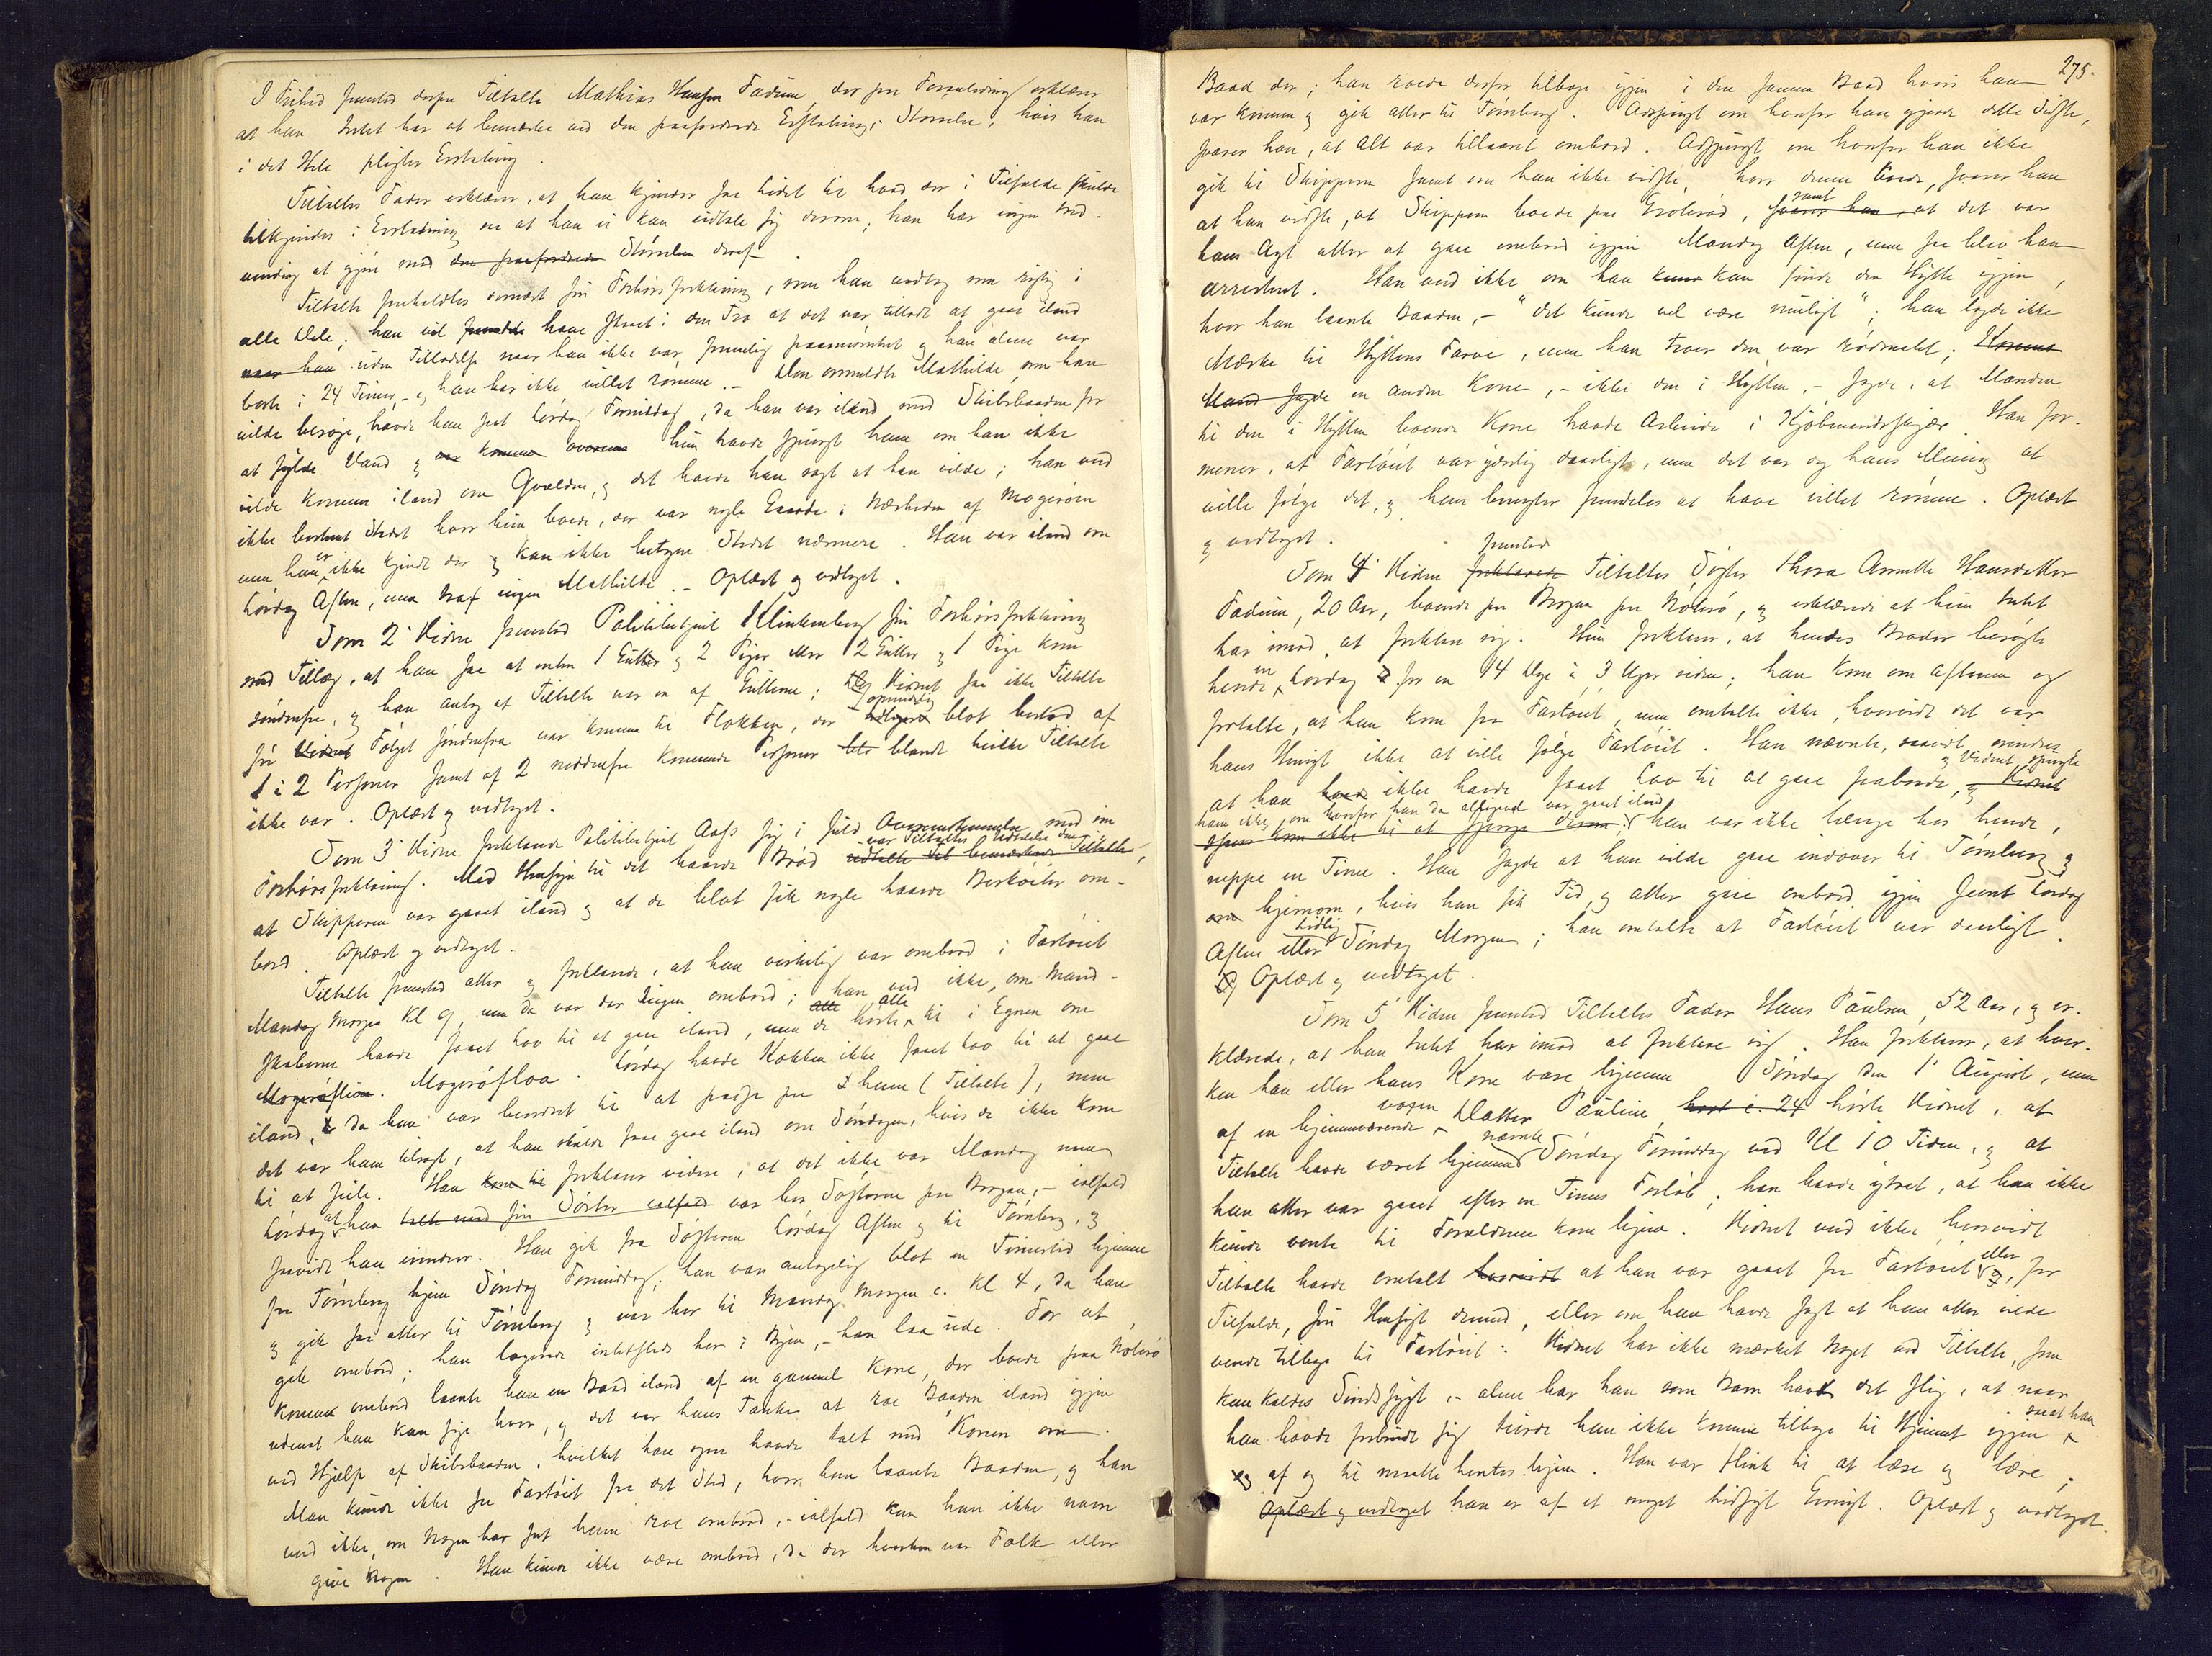 I Frihed fremstod derpaa Tiltalte Mathias Hansen Fadum, der paa Foranledning erklærer
at han Intet har at bemærke ved den paafordrede Erstatnings Størrelse, hvis han
i det Hele pligter Erstatning.
Tiltaltes Fader erklærer, at han kjender saa lidet til hvad der i Tilfælde skulde
tilkjendes i Erstatning at han ei kan udtale sig derom; han har ingen Ind-
vending at gjøre mod den paafordrede Størrelsen deraf.
Tiltalte foreholdtes dernæst sin Forhørsforklaring, som han vedtog som rigtig i
alle Dele; han vil have staaet i den Tro at det var tilladt at gaa iland
naar han uden Tilladelse naar han ikke var særlig paamønstret og han alene var
borte i 24 Timer, og han har ikke villet rømme. - Den omméldte Mathilde, som han
vilde besøge, havde han seet Lørdag Formiddag, da han var iland med Skibsbaaden for
at fylde Vand og hun havde spurgt ham om han ikke
vilde komme iland om Qvælden, og det havde han sagt at han vilde; han ved
ikke bestemt Stedet hvor hun boede, der var nogle Gaarde i Nærheden af Magerøen
men han er ikke kjendt der og kan ikke betegne Stedet nærmere. Han var iland om
Lørdag Aften, men traf ingen Mathilde. - Oplæst og vedtaget.
Som 2' Vidne fremstod Politibetjent Klinkenberg sin Forhørsforklaring
med Tillæg, at han saa at enten 1 Gutter og 2 Piger eller 2 Gutter og 1 Pige kom
søndenfra, og han antog at Tiltalte var en af Gutterne; Vidnet saa ikke Tiltalte
før Vidnet Følget søndenfra var kommen til Flokken, der oprindelig blot bestod af
1 à 2 Personer samt af 2 nordenfra kommende Personer blandt hvilke Tiltalte
ikke var. Oplæst og vedtaget.
Som 3' Vidne forklarede Politibetjent Aass sig i fuld Overensstemmelse med sin
Forhørsforklaring. Med Hensyn til det haarde Brød var Tiltaltes Udtalelse den
at Skipperen var gaaet iland og at de blot fik nogle haarde Beskøiter om-
bord. Oplæst og vedtaget.
Tiltalte fremstod atter og forklarede, at han virkelig var ombord i Fartøiet
Mandag Morgen Kl 9, men da var der Ingen ombord; han ved ikke, om Mand-
skaberne havde faaet Lov til at gaa iland, men de hørte alle til i Egnen om
Magerøfloa. Lørdag havde Kokken ikke faaet Lov til at gaa
iland, da han var beordret til at passe paa ham (Tiltalte), men
det var ham tilsagt, at han skulde faa gaa iland om Søndagen, hvis de ikke kom
til at seile. Han forklarer videre, at det ikke var Mandag men
Lørdag at han var hos Søsteren paa Bryggen, - ialfald
saavidt han erindrer. Han gik fra Søsteren Lørdag Aften og til Tønsberg, og
fra Tønsberg hjem Søndag Formiddag; han var antagelig blot en Timestid hjemme
og gik saa atter til Tønsberg og var her til Mandag Morgen c. Kl 4, da han
gik ombord; han logerede intetsteds her i Byen, - han laa ude. For at
komme ombord laante han en Baad iland af en gammel Kone, der boede paa Nøterø
udenat han kan sige hvor, og det var hans Tanke at roe Baaden iland igjen
ved Hjælp af Skibsbaaden, hvilket han ogsaa havde talt med Konen om.
Man kunde ikke see Fartøiet fra det Sted, hvor han laante Baaden, og han
ved ikke, om Nogen har seet ham roe ombord, - ialfald kan han ikke navn
give Nogen. Han kunde ikke være ombord, da der hverken var Folk eller
275.
Baad der; han roede derfor tilbage igjen i den samme Baad hvori han
var kommen og gik atter til Tønsberg. Adspurgt om hvorfor han gjorde dette Sidste,
svarer han, at Alt var tillaaset ombord. Adspurgt om hvorfor han ikke
gik til Skipperen samt om han ikke vidste, hvor denne boede, svarer han
at han vidste, at Skipperen boede paa Grolerød, samt at det var
hans Agt atter at gaa ombord igjen Mandag Aften, men saa blev han
arresteret. Han ved ikke om han kan finde den Hytte igjen,
hvor han laante Baaden, - "det kunde vel være muligt"; han lagde ikke
Mærke til Hyttens Farve, men han troer den var rødmalet;
en anden Kone, - ikke den i Hytten, - sagde, at Manden
til den i Hytten boende Kone havde Arbeide i Kjøbmandsskjær. Han for-
mener, at Fartøiet var gjerlig daarligt, men det var og hans Mening at
ville følge det, og han benegter fremdeles at have villet rømme. Oplæst
og vedtaget.
Som 4' Vidne fremstod Tiltaltes Søster Thora Annette Hansdatter
Fadum, 20 Aar, boende paa Bryggen paa Nøterø, og erklærede at hun Intet
har imod, at forklare sig. Hun forklarer, at hendes Broder besøgte
hende en Lørdag for en 14 Dage à 3 Uger siden; han kom om Aftenen og
fortalte, at han kom fra Fartøiet, men omtalte ikke, hvorvidt det var
hans Hensigt ikke at ville følge Fartøiet. Han nævnte, saavidt erindres,
at han ikke havde faaet Lov til at gaa fraborde, og Vidnet spurgte
ham ikke, om hvorfor han da alligevel var gaaet iland; han var ikke længe hos hende,
neppe en Time. Han sagde at han vilde gaa indover til Tønsberg og
hjemom, hvis han fik Tid, og atter gaa ombord igjen seent Lørdag
Aften eller tidlig Søndag Morgen; han omtalte at Fartøiet var daarligt.
Oplæst og vedtaget.
Som 5' Vidne fremstod Tiltaltes Fader Hans Paulsen, 52 Aar, og er-
klærede, at han Intet har imod at forklare sig. Han forklarer, at hver-
ken han eller hans Kone vare hjemme Søndag den 1' August, men
af en hjemmeværende voxen Datter Pauline hørte Vidnet, at
Tiltalte havde været hjemme nævnte Søndag Formiddag ved Kl 10 Tiden, og at
han atter var gaaet efter en Times Forløb; han havde ytret, at han ikke
kunde vente til Forældrene kom hjem. Vidnet ved ikke, hvorvidt
Tiltalte havde omtalt at han var gaaet fra Fartøiet eller, for
Tilfælde, sin Hensigt dermed, eller om han havde sagt at han atter vilde
vende tilbage til Fartøiet. Vidnet har ikke mærket Noget ved Tiltalte, som
kan kaldes Sindssygt, - alene har han som Barn havt det slig, at naar
han havde forbrudt sig turde han ikke komme tilbage til Hjemmet igjen saa at han
af og til maatte hentes hjem. Han var flink til at læse og lære;
Oplæst og vedtaget han er af et meget hidsigt Gemyt. Oplæst og vedtaget.